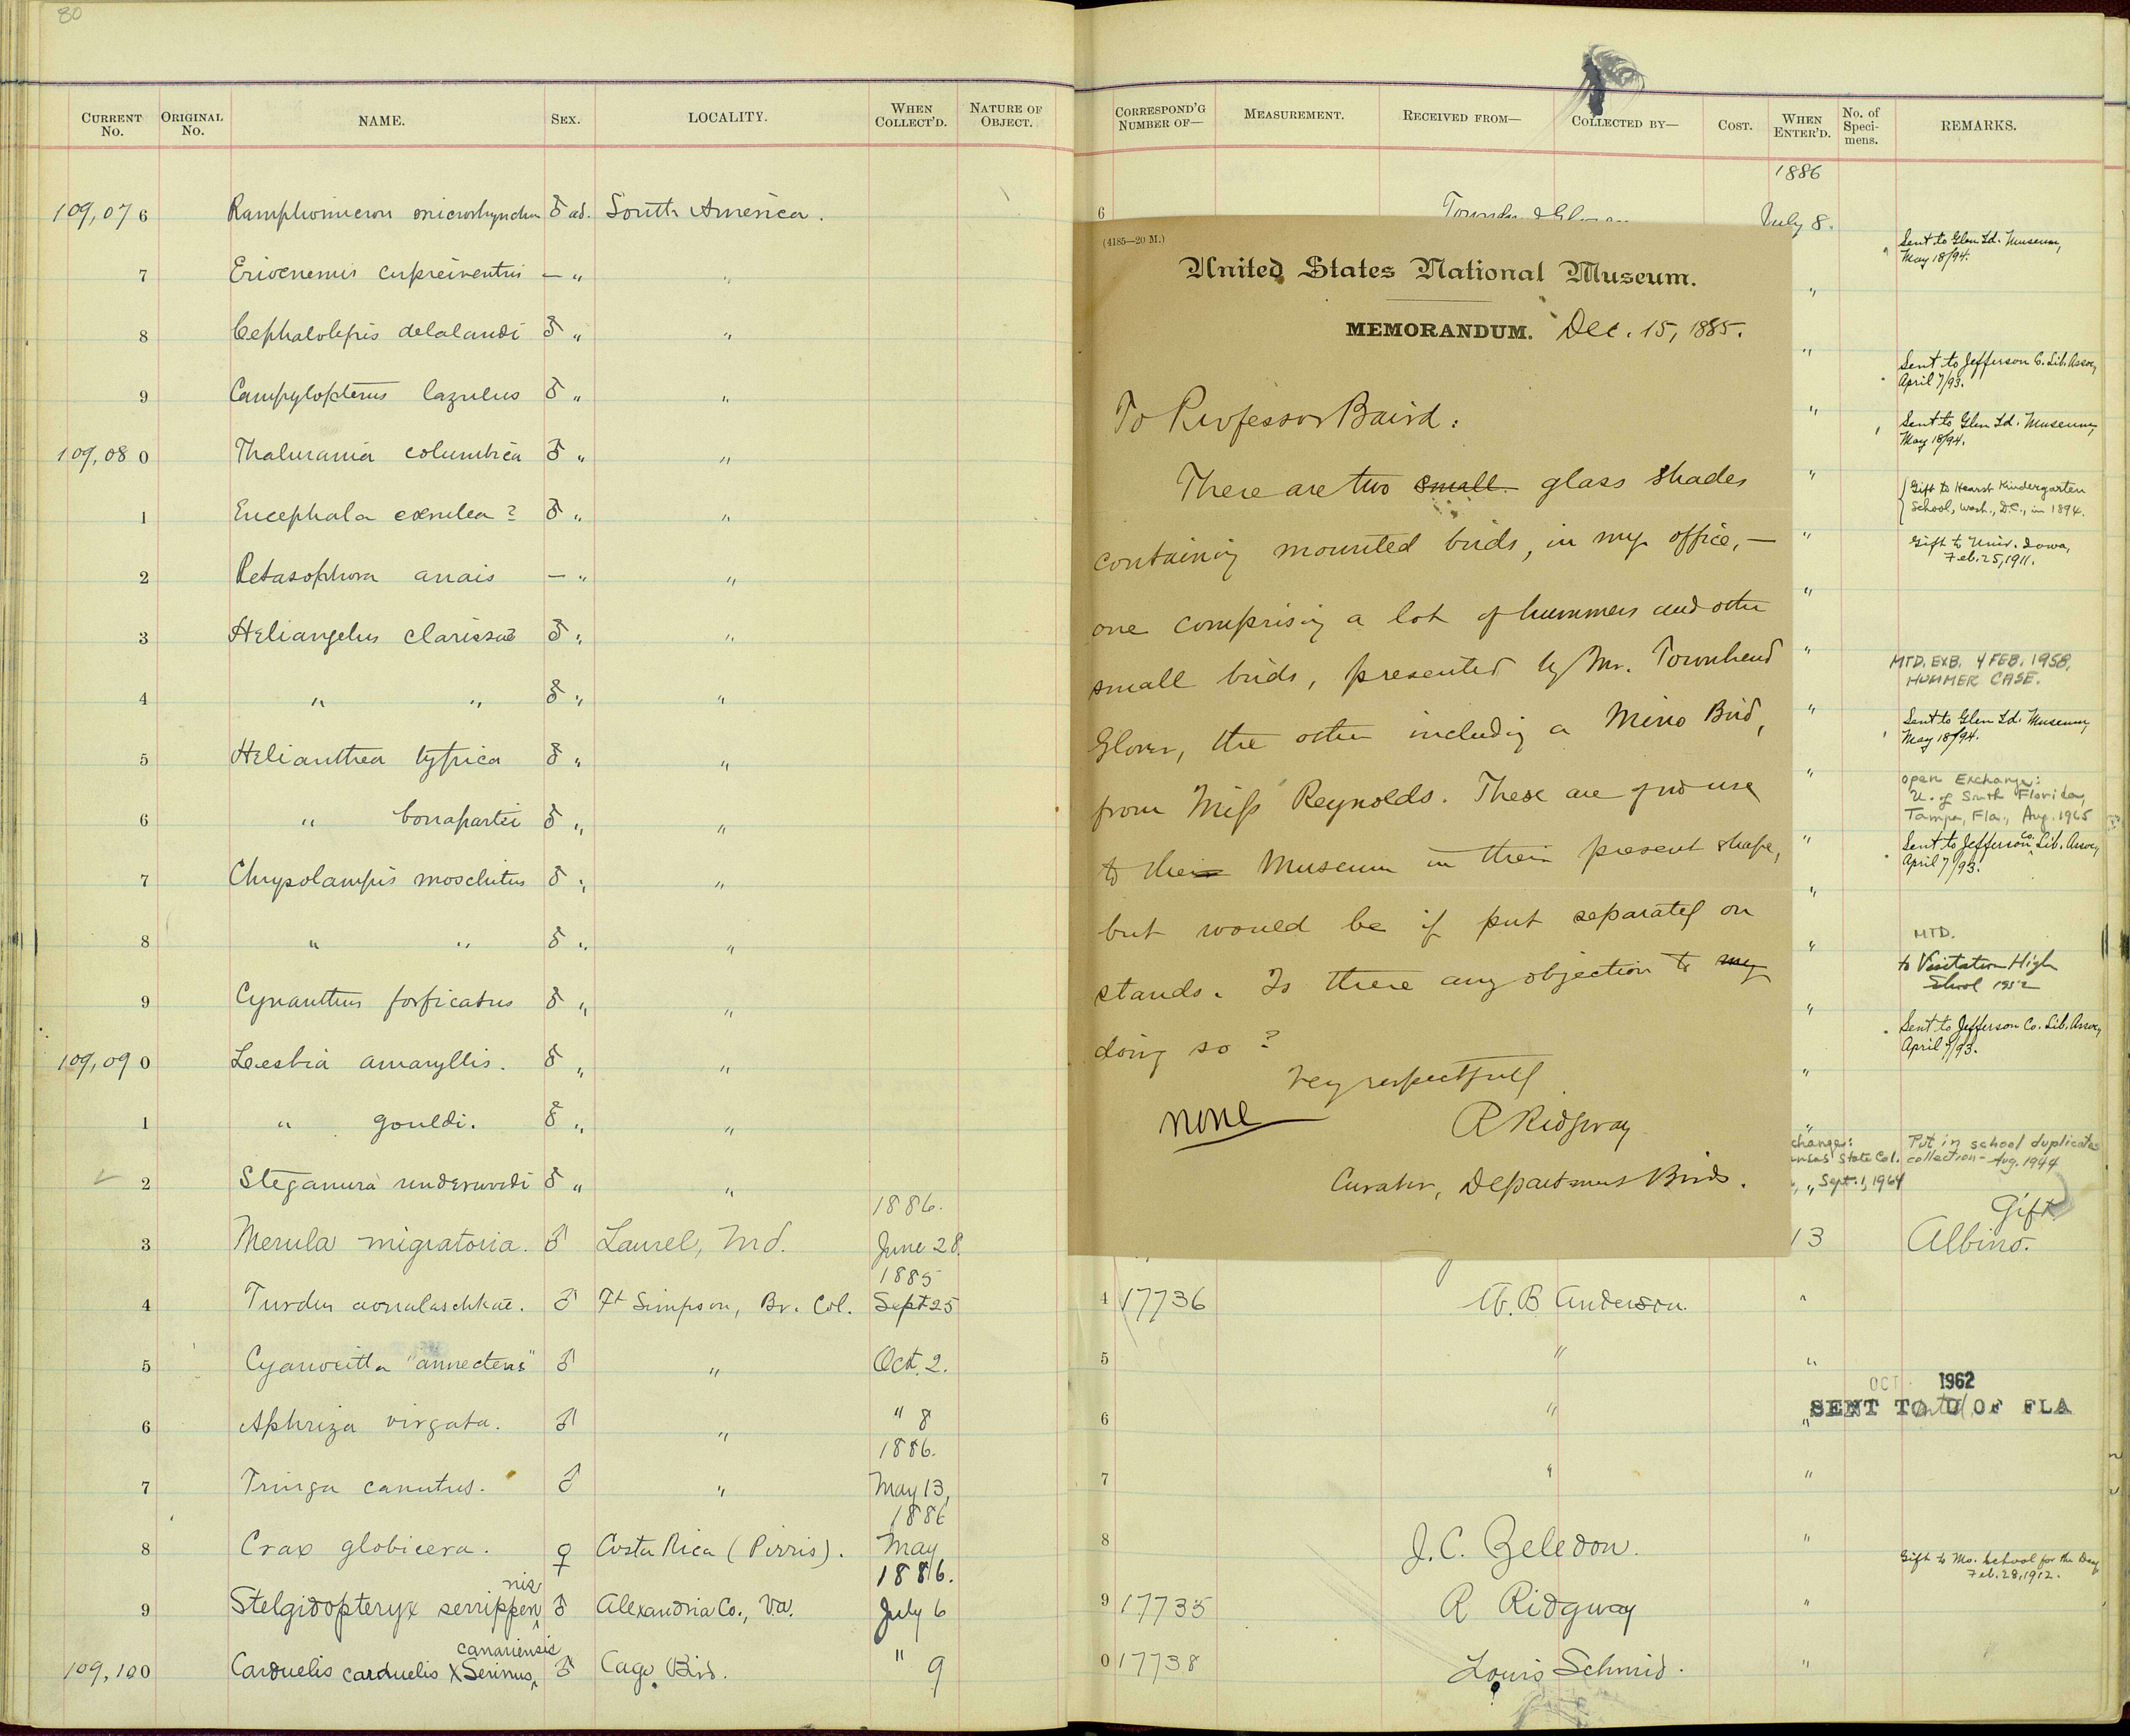 80
CURRENT No. ORIGINAL No. NAME. SEX. LOCALITY. WHEN COLLECT'D. NATURE OF OBJECT.
109,076 Ramphomicron microrhyncha ♂ ad. South America.
7 Eriocnemis cupreiventris — "  "
8 Cephalolepis delalandi ♂ "  "
9 Campylopterus lazulus ♂ "  "
109,080 Thalurania columbica ♂ "  "
1 Eucephala cærulea? ♂ "  "
2 Petasophora anais — "  "
3 Heliangelus clarissæ ♂ "  "
4 " " ♂ "  "
5 Helianthea typica ♂ "  "
6 " bonapartei ♂ "  "
7 Chrysolampis moschitus ♂ "  "
8 " " ♂ "  "
9 Cynanthus forficatus ♂ "  "
109,090 Lesbia amaryllis. ♂ "  "
1 " gouldi. ♂ "  "
2 Steganura underwoodi ♂ "  "
1886.
3 Merula migratoria. ♂ Laurel, Md. June 28.
1885
4 Turdus aonalaschkae. ♂ Ft Simpson, Br. Col. Sept 25
5 Cyanocitta "annectens" ♂ " Oct. 2.
6 Aphriza virgata. ♂ " " 8
1886.
7 Tringa canutus. ♂ " May 13,
1886
8 Crax globicera. ♀ Costa Rica (Pirris). May
1886.
nis
9 Stelgidopteryx serripen ♂ Alexandria Co., Va. July 6
canariensis
109,100 Carduelis carduelis X Serinus, ♂ Cage Bird. " 9
CORRESPOND'G NUMBER OF— MEASUREMENT. RECEIVED FROM— COLLECTED BY— COST. WHEN ENTER'D. No. of Speci-mens. REMARKS.
1886
6 July 8.
Sent to Glen Id. Museum,
May 18/94.
"
"
Sent to Jefferson C. Lib. Assoc,
April 7/93.
"
Sent to Glen Id. Museum,
May 18/94.
"
Gift to Hearst Kindergarten
School, Wash., D.C., in 1894.
"
Gift to Univ. Iowa,
Feb. 25, 1911.
"
"
MTD. EXB. 4 FEB. 1958.
HUMMER CASE.
"
Sent to Glen Id. Museum,
May 18/94.
"
open Exchange:
U. of South Florida,
Tampa, Fla., Aug. 1965
"
Sent to Jefferson Co. Lib. Assoc,
April 7/93.
"
"
MTD.
to Visitation High
School 1952
"
Sent to Jefferson Co. Lib. Assoc,
April 7/93.
"
"
change:
nsas State Col.
" Sept. 1, 1964
Put in school duplicate
collection - Aug. 1944
Gift
13 Albino.
(4185—20 M.)
United States National Museum.
MEMORANDUM. Dec. 15, 1885.
To Professor Baird:
There are two small glass shades
containing mounted birds, in my office, —
one comprising a lot of hummers and other
small birds, presented by Mr. Townhend
Glover, the other including a Mino Bird,
from Miss Reynolds. These are of no use
to their Museum in their present shape,
but would be if put separately on
stands. Is there any objection to my
doing so?
Very respectfully
none
R Ridgway
Curator, Department Birds.
4 17736 W. B Anderson. "
5 " "
OCT 1962
6 " "
SENT TO U OF FLA
7 " "
8 J. C. Zeledon. "
Gift to Mo. School for the Deaf
Feb. 28, 1912.
9 17735 R Ridgway "
0 17738 Louis Schmid. "